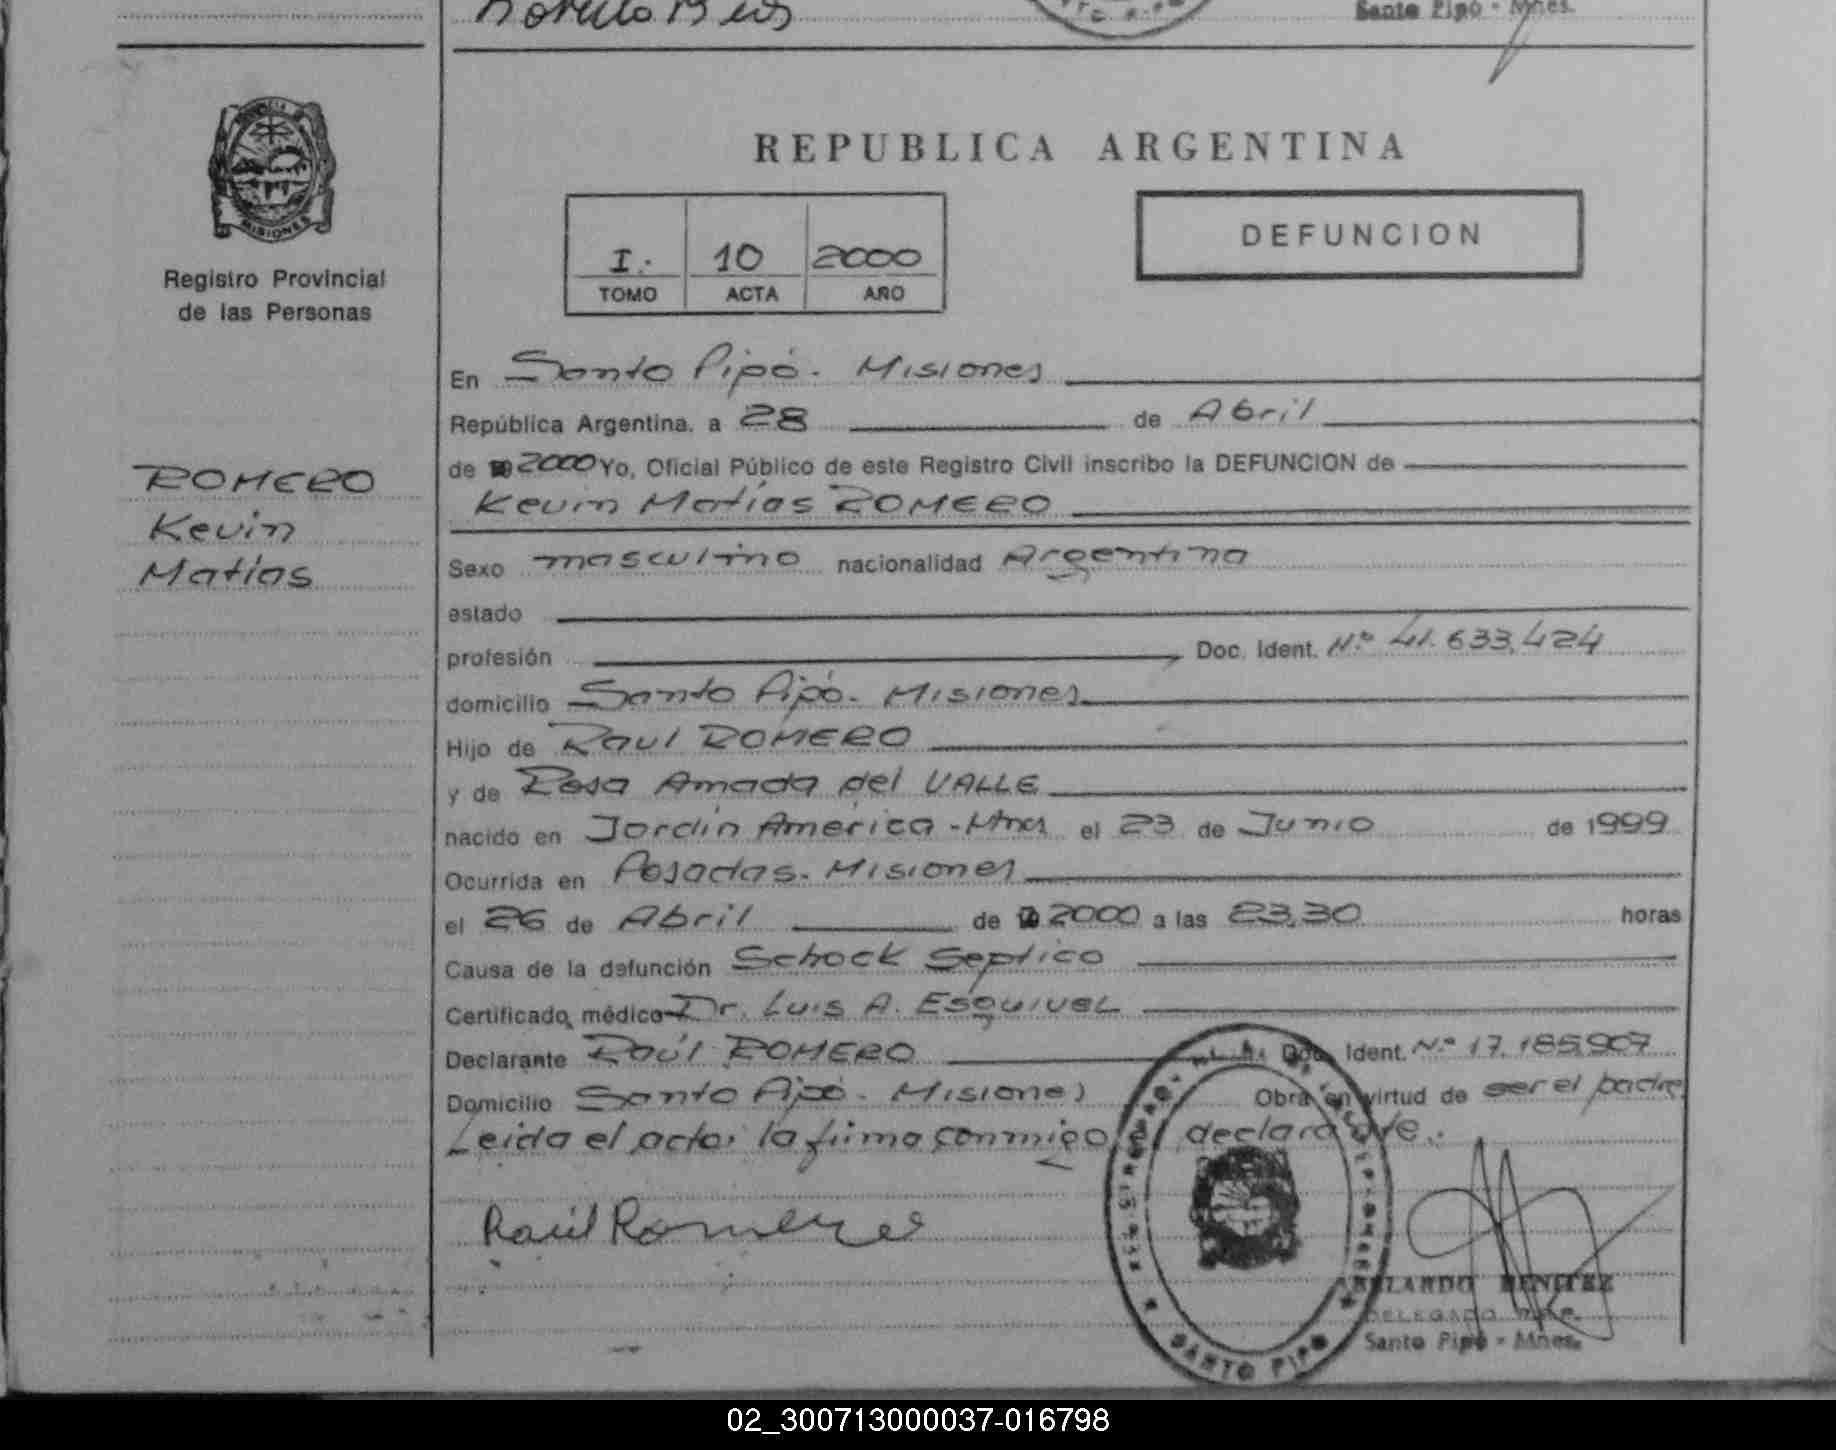 Santo Pipó - Mnes.
REPUBLICA ARGENTINA
DEFUNCION
I. 10 2000
TOMO ACTA AÑO
MISIONES
Registro Provincial
de las Personas
ROMERO
Kevin
Matías
En Santo Pipó. Misiones
República Argentina, a 28 de Abril
de 2000 Yo, Oficial Público de este Registro Civil inscribo la DEFUNCION de
Kevin Matías ROMERO
Sexo masculino nacionalidad Argentina
estado
profesión Doc. Ident. Nº 41.633.424
domicilio Santo Pipó. Misiones
Hijo de Raul ROMERO
y de Rosa Amada del VALLE
nacido en Jardín América - Mnes el 23 de Junio de 1999
Ocurrida en Posadas. Misiones
el 26 de Abril de 2000 a las 23,30 horas
Causa de la defunción Schock Septico
Certificado médico Dr. Luis A. ESQUIVEL
Declarante Raúl ROMERO Doc. Ident. Nº 17.185.907
Domicilio Santo Pipó. Misiones Obra en virtud de ser el padre
Leida el acta, la firma conmigo el declarante.
Raúl Romero
ABELARDO BENITEZ
DELEGADO
Santo Pipó - Mnes.
SANTO PIPO
02_300713000037-016798